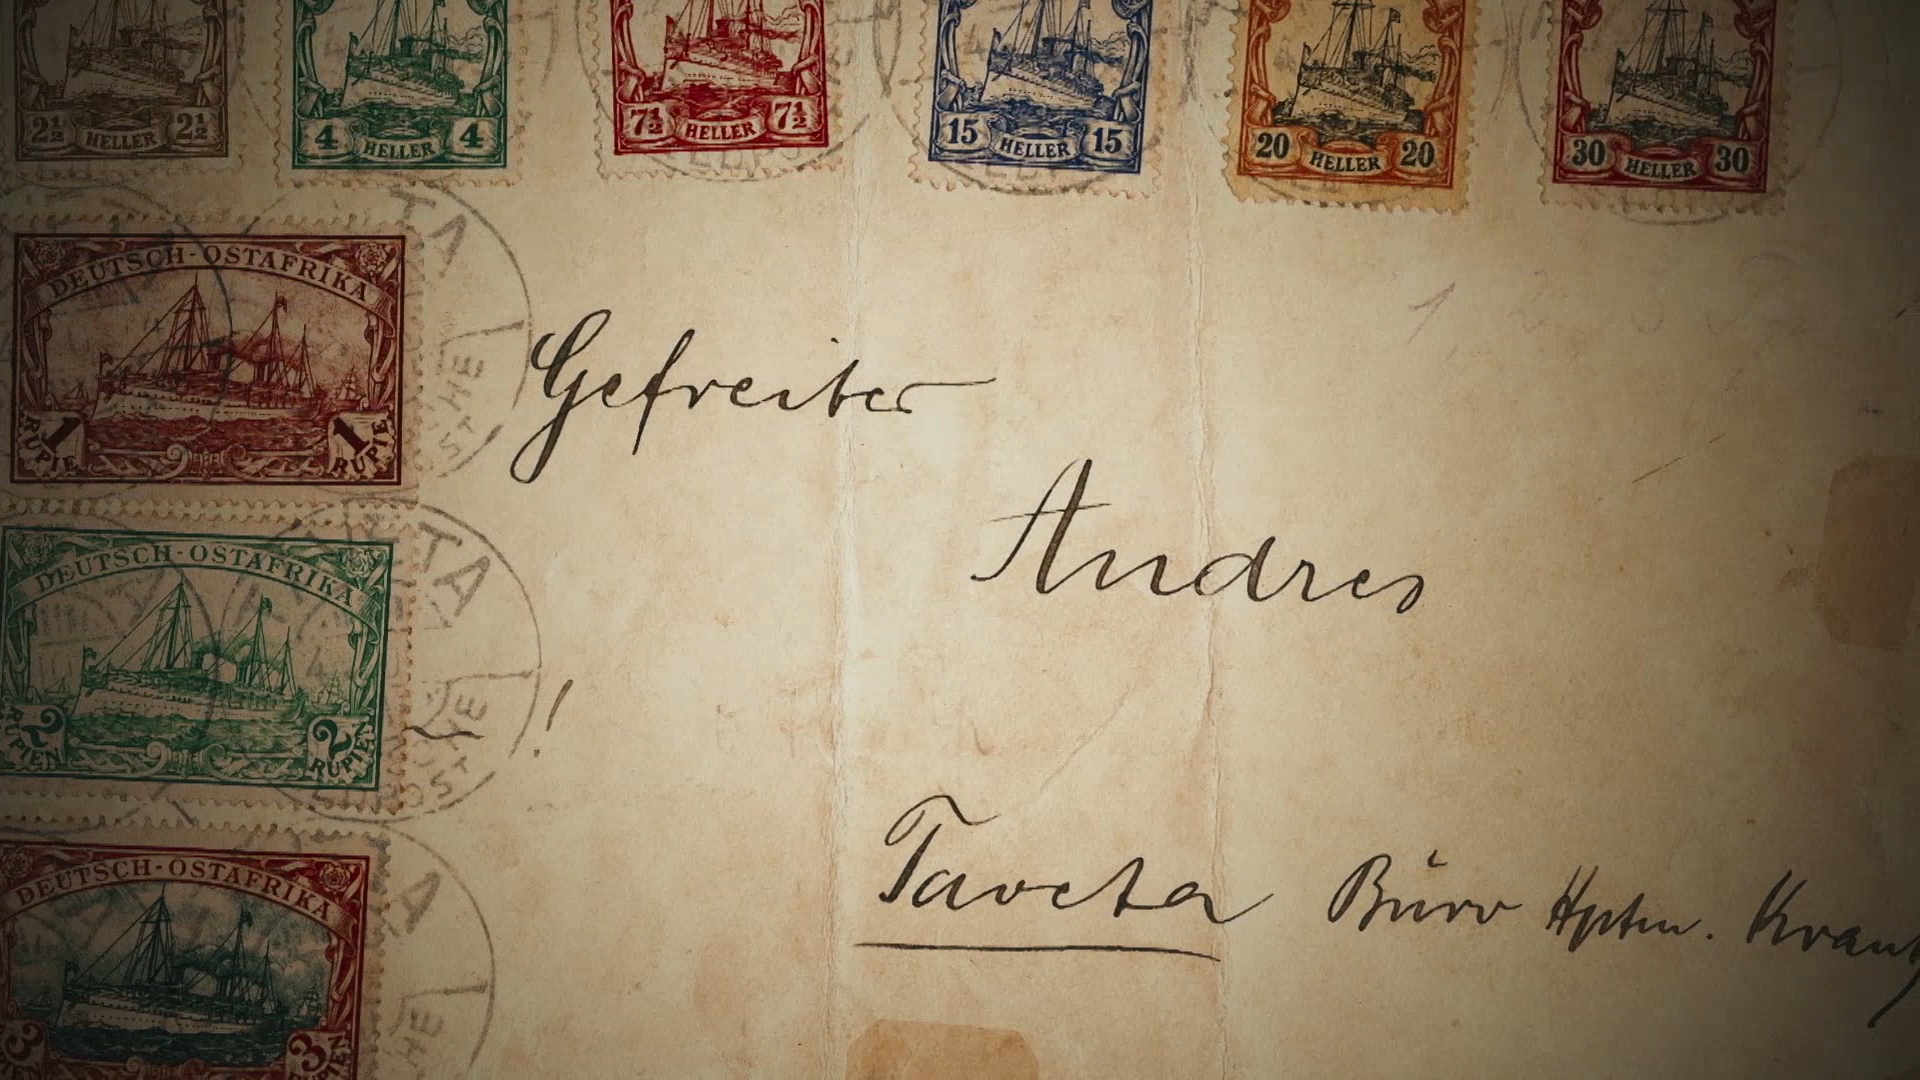 2½ HELLER 2½
4 HELLER 4
7½ HELLER 7½
15 HELLER 15
20 HELLER 20
30 HELLER 30
DEUTSCH-OSTAFRIKA
1 RUPIE 1 RUPIE
DEUTSCH-OSTAFRIKA
2 RUPIEN 2 RUPIEN
DEUTSCH-OSTAFRIKA
3 3 RUPIEN
Gefreiter
Andres
!
Taveta Büro Hptm.